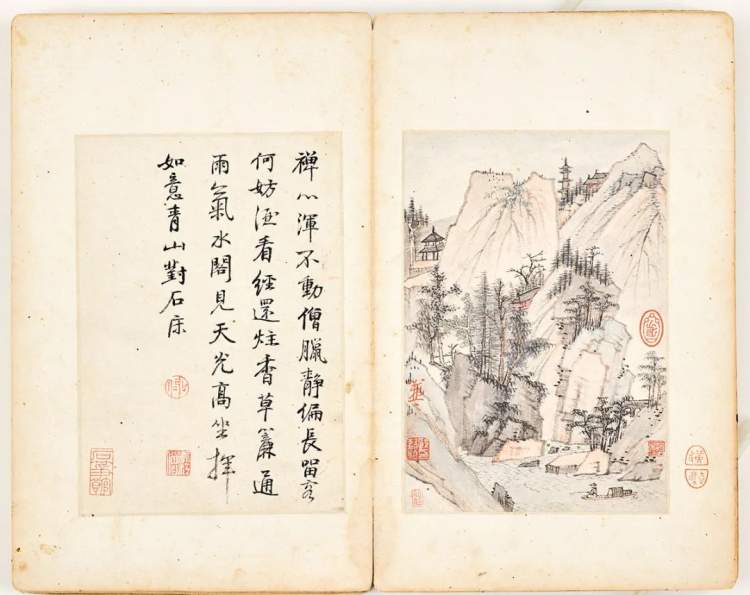 禅心渾不動僧臘静偏長留客
何妨酒看經還炷香草簾通
雨氣水閣見天光高坐揮
如意青山對石床